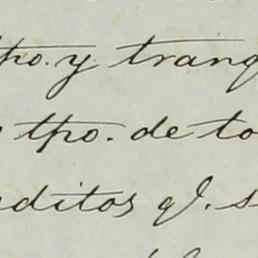 tpo. y tranq
tpo. de to
editos ql. s